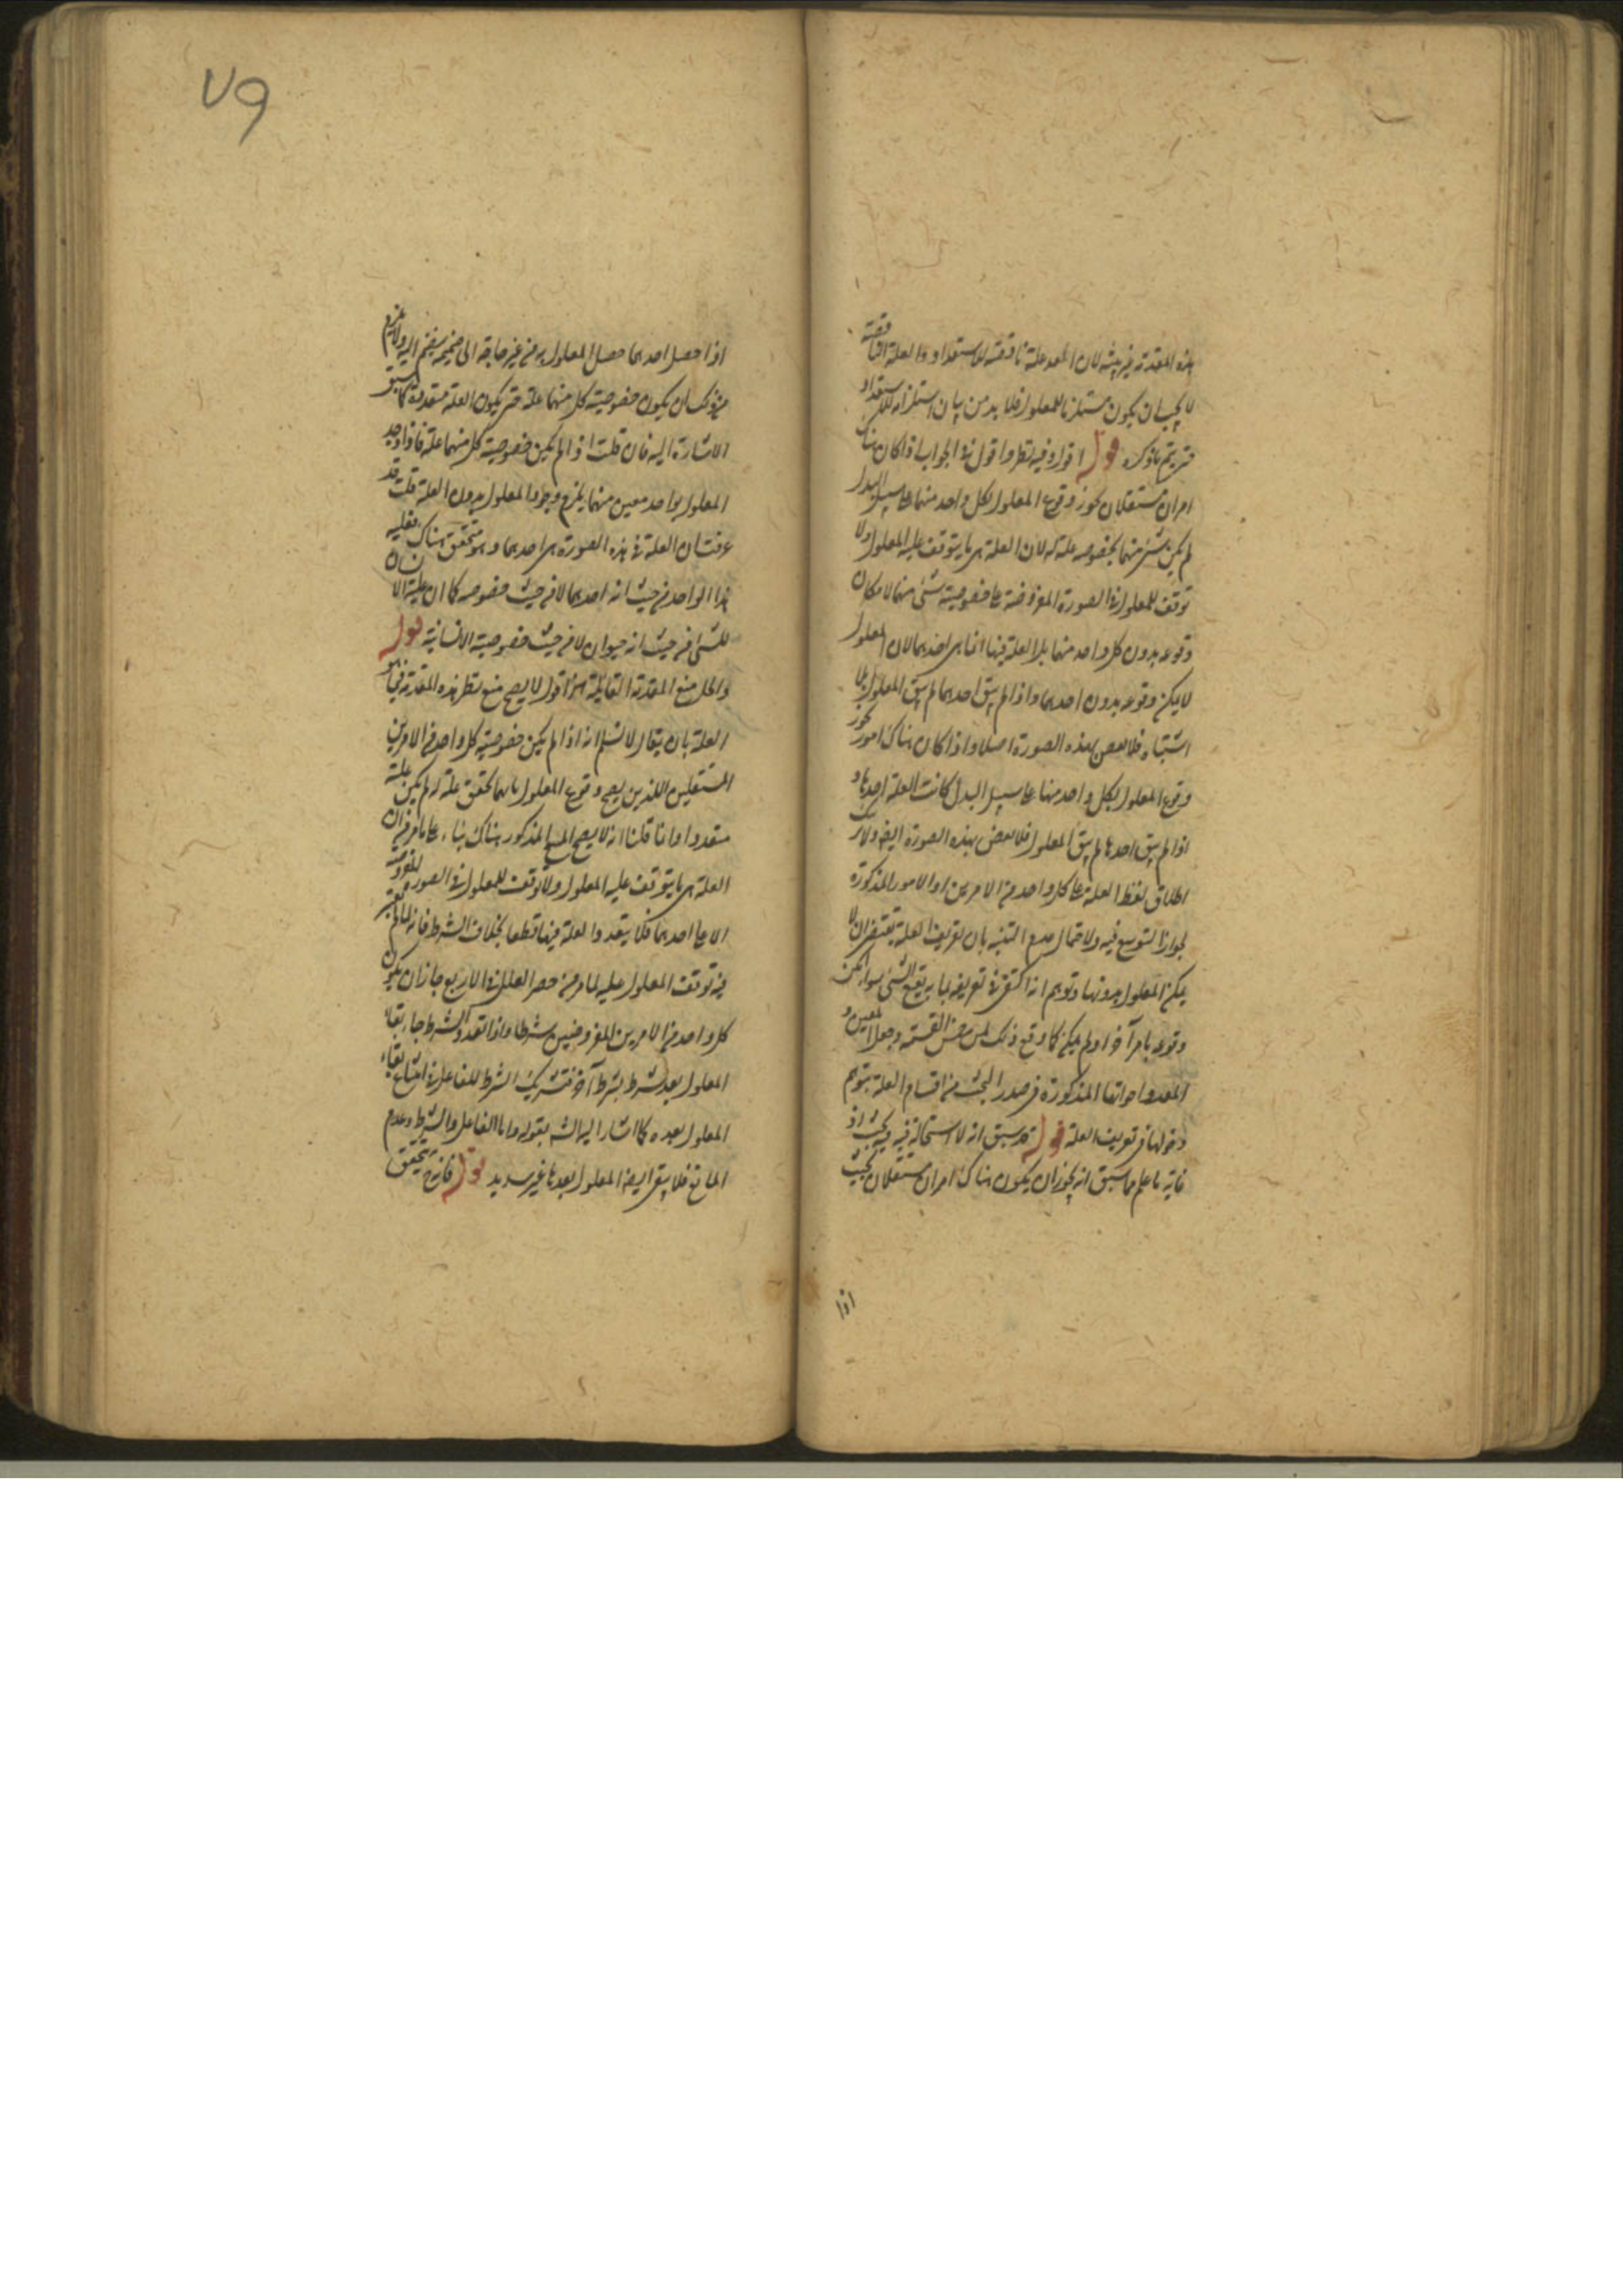 هذه المقدمة غير بينة لان المعد علة ناقصة للاستعداد والعلة الناقصة
لا يجب ان يكون مستلزما للمعلول فلا بد من بيان استلزامه للاستعداد
حتى يتم ما ذكره قوله اقول وفيه نظر واقول في الجواب اذا كان هناك
امران مستقلان يجوز وقوع المعلول بكل واحد منهما على سبيل البدل
لم يكن شئ منهما بخصوصه علة له لان العلة هي ما يتوقف عليه المعلول ولا
توقف للمعلول في الصورة المفروضة على خصوصية شئ منهما لامكان
وقوعه بدون كل واحد منهما بل العلة فيها انما هي احدهما لان المعلول
لا يمكن وقوعه بدون احدهما واذا لم يبق احدهما لم يبق المعلول بلا
اشتباه فلا نقض بهذه الصورة اصلا واذا كان هناك امور يجوز
وقوع المعلول بكل واحد منها على سبيل البدل كانت العلة احدها و
اذا لم يبق احدها لم يبق المعلول فلا نقض بهذه الصورة ايضا ولا
اطلاق لفظ العلة على كل واحد من الامرين او الامور المذكورة
لجواز التوسع فيه ولا حمال مع التنبيه بان تعريف العلة يقتضي ان لا
يمكن المعلول بدونها وتوهم انه اكتفى في تعريفه بما به يقع الشئ سواء امكن
وقوعه بامر آخر او لم يمكن كما وقع ذلك لمن القسمة وجعل المعين و
المعد واخواتها المذكورة في صدر البحث من اقسام العلة بتوهم
دخولها في تعريف العلة قوله قد سبق انه لا استحالة فيه فيه بحث اذ
غاية ما علم مما سبق انه يجوز ان يكون هناك امران مستقلان بحيث
اذا
٧٩
اذا حصل احدهما حصل المعلول به من غير حاجة الى ضميمة ينضم اليه ولا يلزم
من ذلك ان يكون خصوصية كل منهما علة حتى يكون العلة متعددة كما سبق
الاشارة اليه فان قلت اذا لم يكن خصوصية كل منهما علة فاذا وجد
المعلول بواحد معين منهما يلزم وجود المعلول بدون العلة قلت قد
عرفت ان العلة في هذه الصورة هي احدهما وهو متحقق هناك فعلية
هذا الواحد من حيث انه احدهما لا من حيث خصوصه كما ان علية الانسان
للمشي من حيث انه حيوان لا من حيث خصوصية الانسانية قوله
والحل منع المقدمة القائلة اقول لا يصح منع نظر هذه المقدمة في
العلة بان يقال لا نسلم انه اذا لم يكن خصوصية كل واحد من الامرين
المستقلين اللذين يصح وقوع المعلول بايهما تحقق علة له لم يكن علة
متعددا وانما قلنا انه لا يصح المنع المذكور هناك بناء على ما مر من ان
العلة هي ما يتوقف عليه المعلول ولا توقف للمعلول في الصورة المفروضة
الا على احدهما فلا يتعدد العلة فيها قطعا بخلاف الشرط فانه لما لم يعتبر
فيه توقف المعلول عليه لما مر من حصر العلل في الاربع جاز ان يكون
كل واحد من الامرين المفروضين شرطا واذا تعدد الشرط جاز بقاء
المعلول بعد شرط بشرط آخر فتشريك الشرط للفاعل في امتناع بقاء
المعلول بعده كما اشار اليه الش بقوله واما الفاعل والشرط وعدم
المانع فلا يبقى ايضا المعلول بعدها غير سديد قوله فانه يتحقق